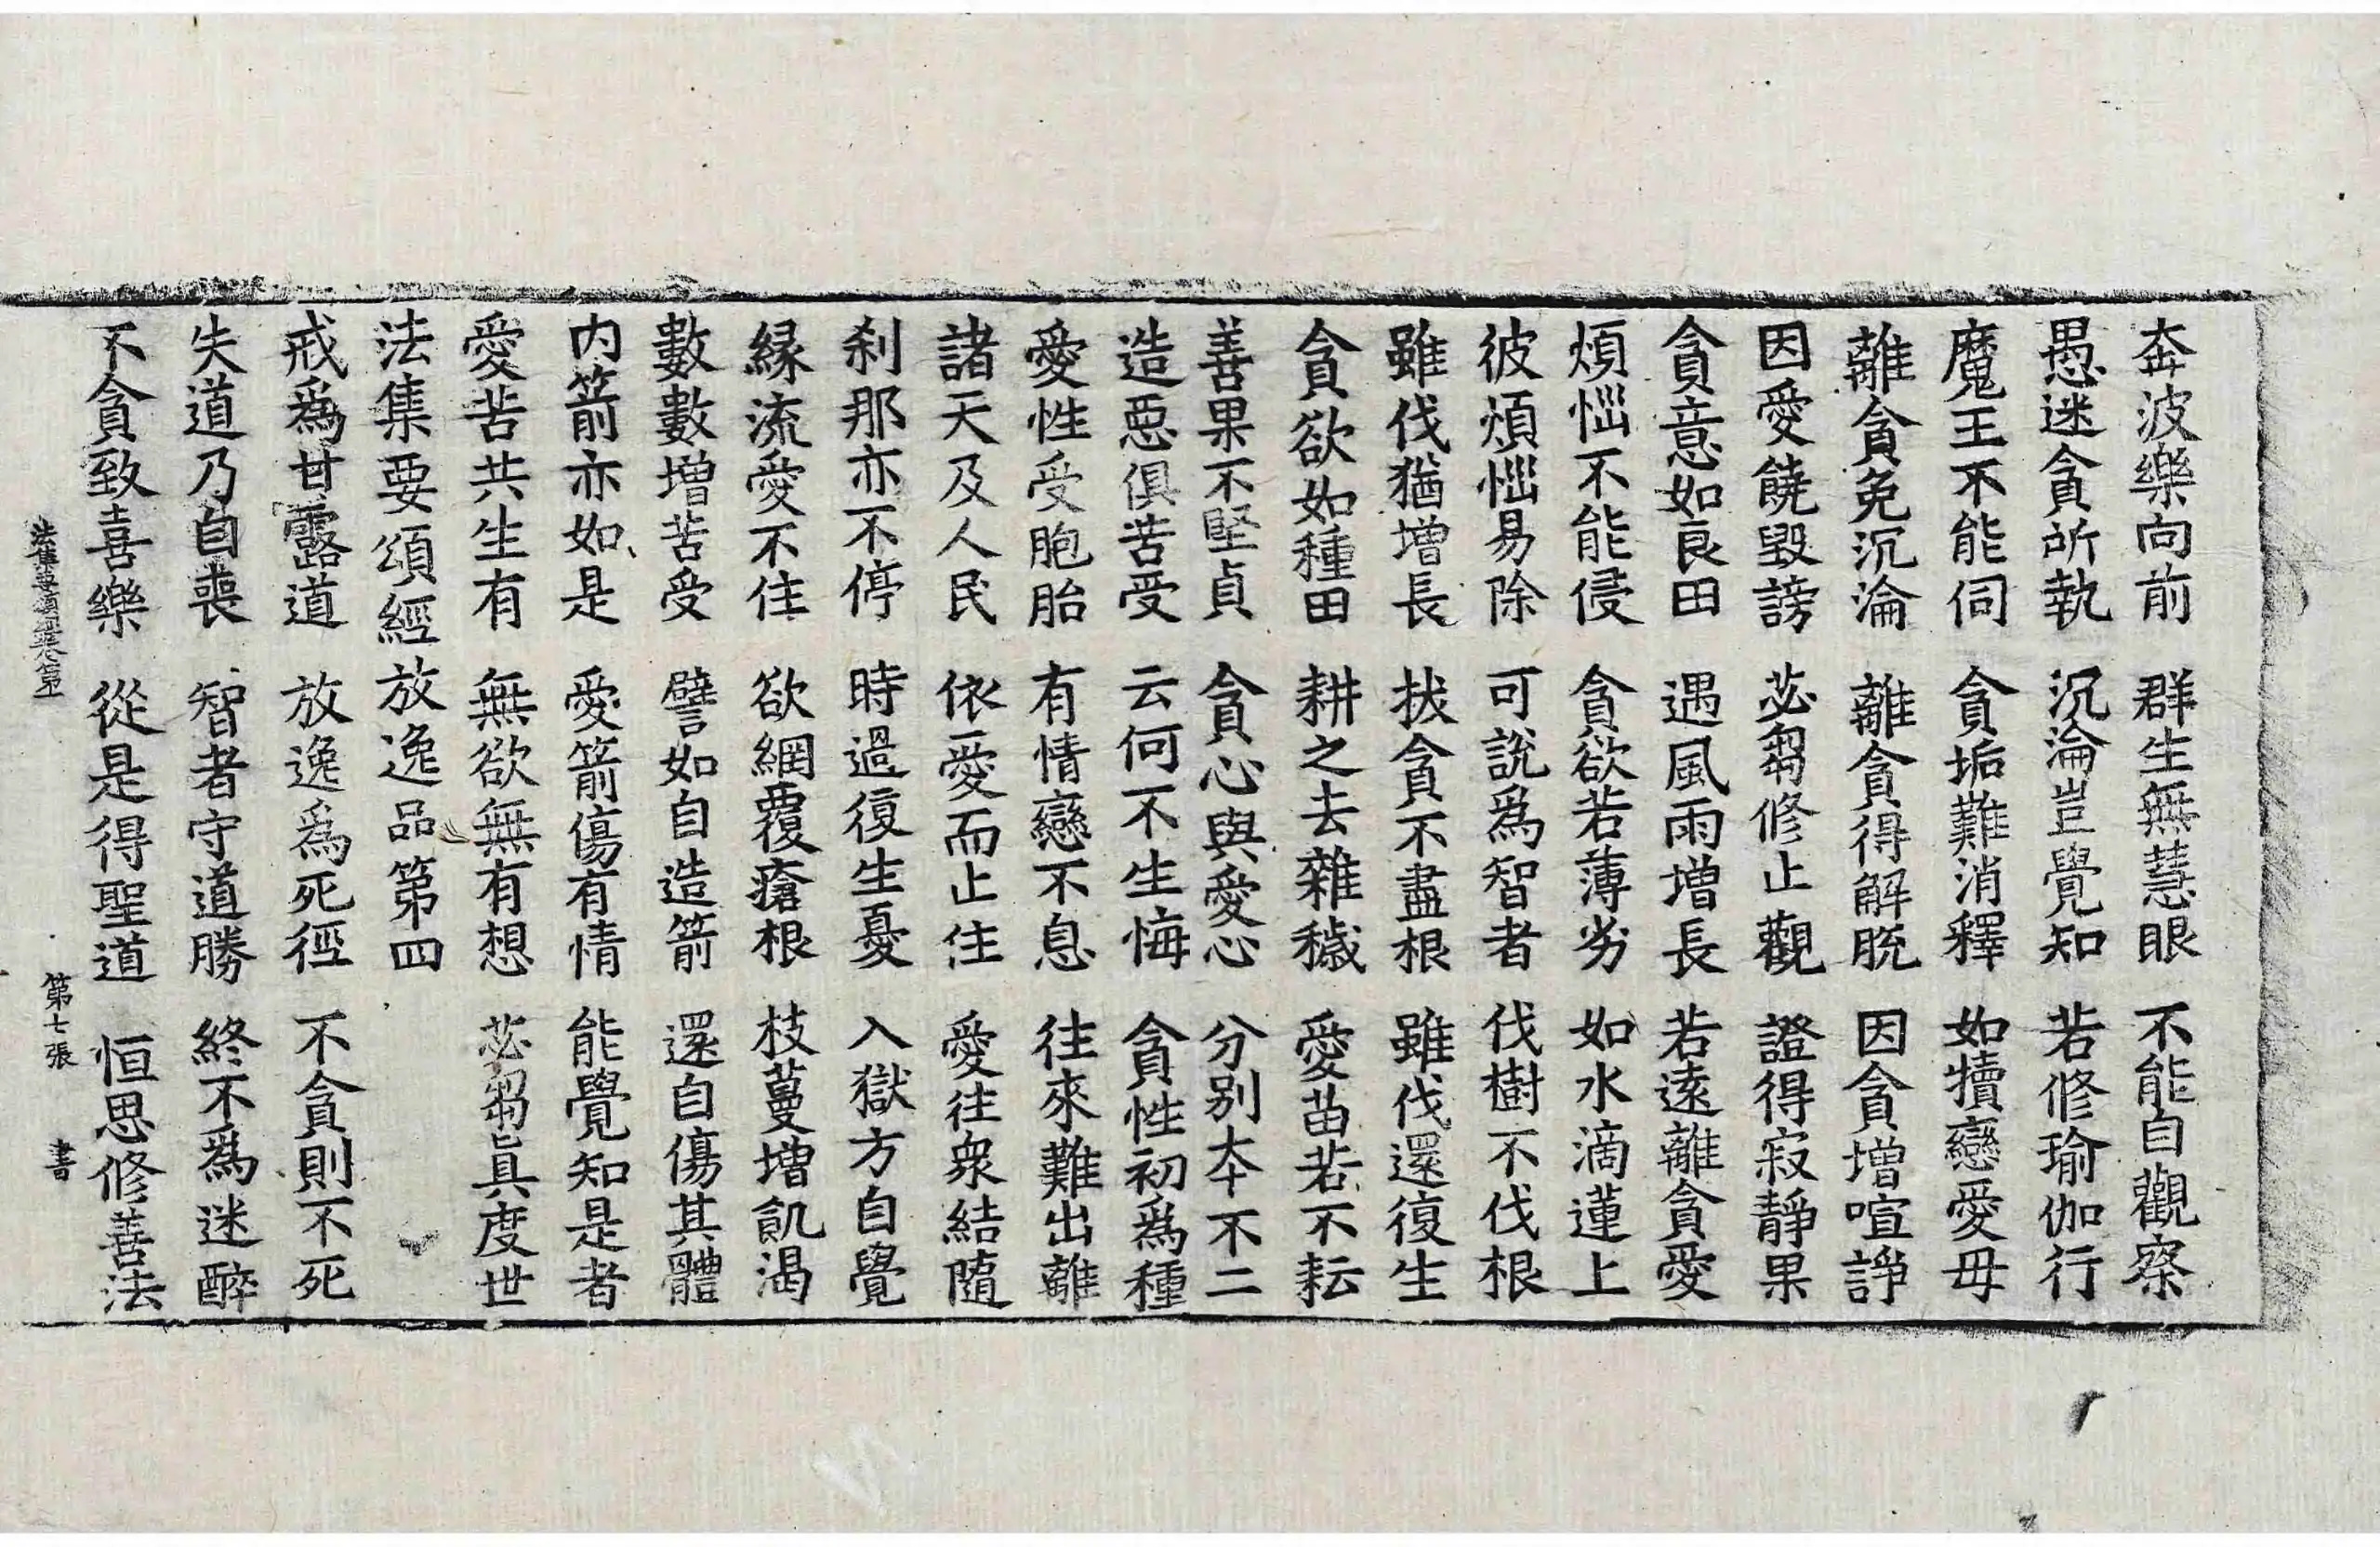 奔波樂向前 群生無慧眼 不能自觀察
愚迷貪所執 沉淪豈覺知 若修瑜伽行
魔王不能伺 貪垢難消釋 如犢戀愛母
離貪免沉淪 離貪得解脫 因貪增喧諍
因愛饒毀謗 苾芻修止觀 證得寂靜果
貪意如良田 遇風雨增長 若遠離貪愛
煩惱不能侵 貪欲若薄劣 如水滴蓮上
彼煩惱易除 可說爲智者 伐樹不伐根
雖伐猶增長 拔貪不盡根 雖伐還復生
貪欲如種田 耕之去雜穢 愛苗若不耘
善果不堅貞 貪心與愛心 分別本不二
造惡俱苦受 云何不生悔 貪性初爲種
愛性受胞胎 有情戀不息 往來難出離
諸天及人民 依愛而止住 愛往衆結隨
刹那亦不停 時過復生憂 入獄方自覺
緣流愛不住 欲網覆瘡根 枝蔓增飢渴
數數增苦受 譬如自造箭 還自傷其體
内箭亦如是 愛箭傷有情 能覺知是者
愛苦共生有 無欲無有想 苾芻眞度世
法集要頌經放逸品第四
戒爲甘露道 放逸爲死徑 不貪則不死
失道乃自喪 智者守道勝 終不爲迷醉
不貪致喜樂 從是得聖道 恒思修善法
法集要頌經卷第一 第七張 書